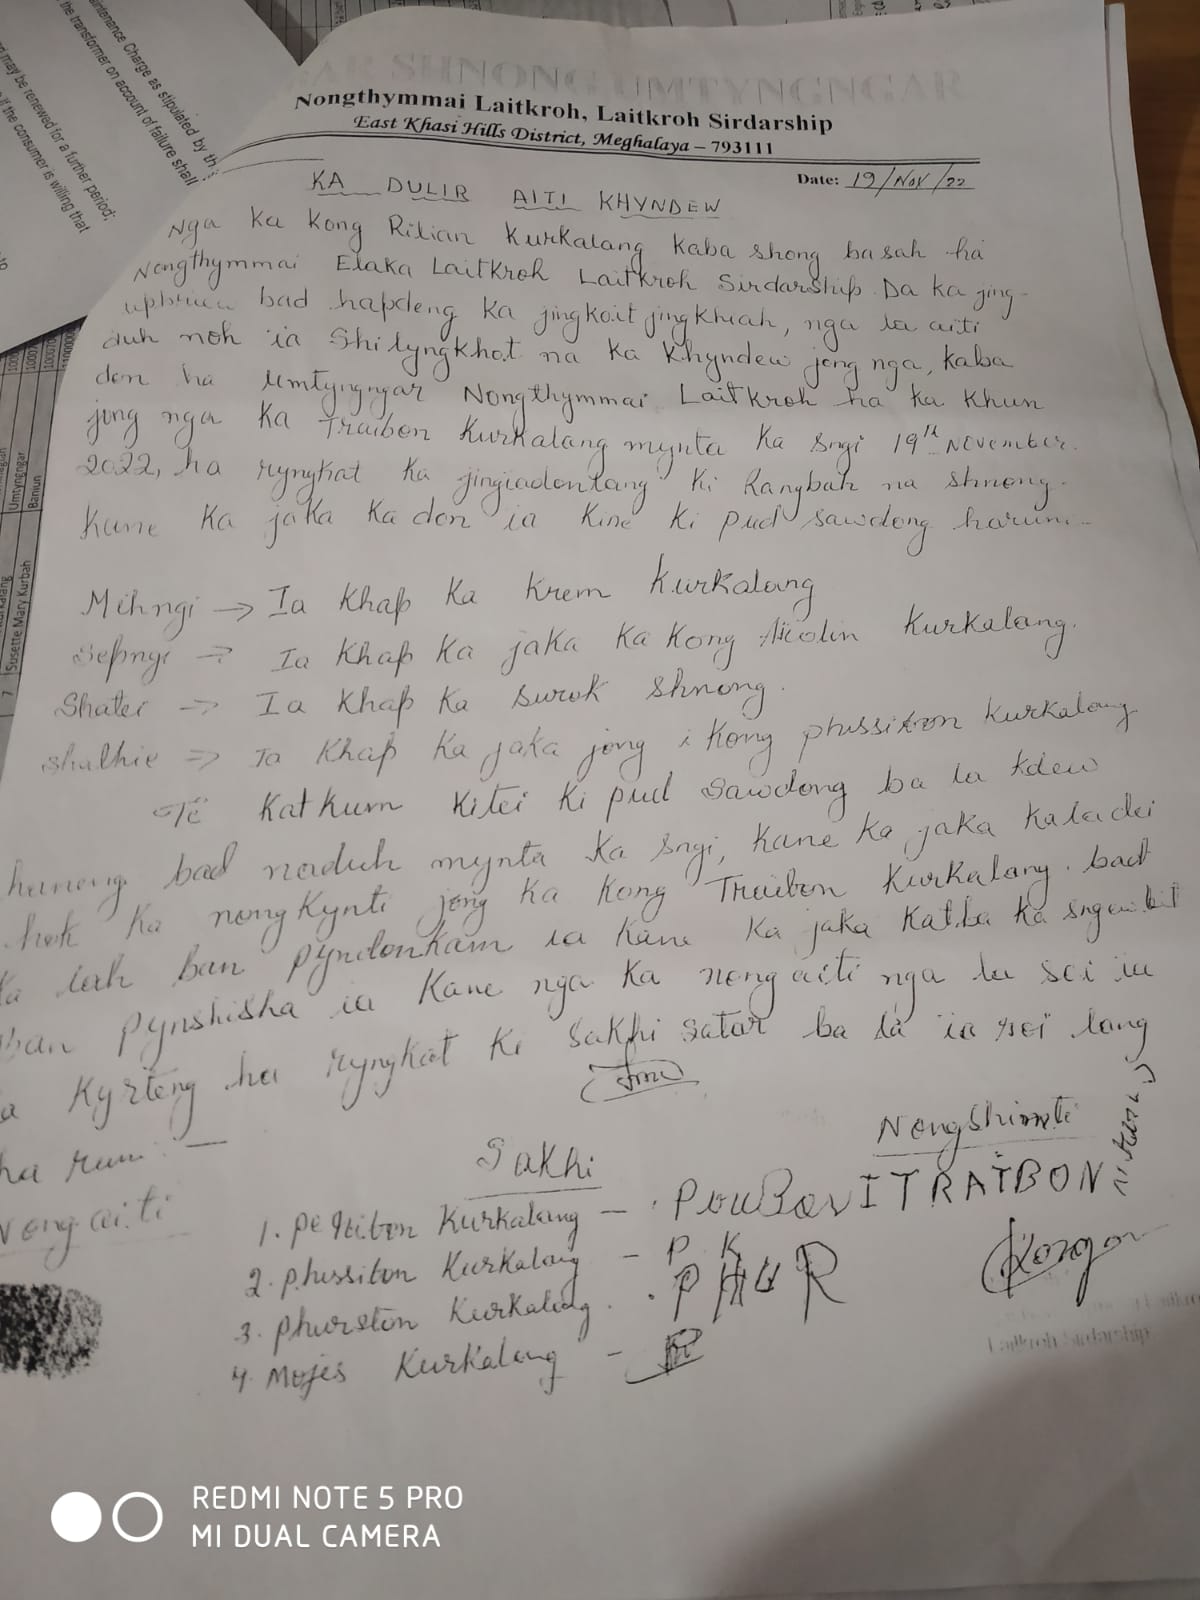 Maintenance Charge as stipulated by th
the transformer on account of failure shall
may be renewed for a further period;
if the consumer is willing that
Umtyngngar
Baniun
Susette Mary Kurbah
AR SHNONG UMTYNGNGAR
Nongthymmai Laitkroh, Laitkroh Sirdarship
East Khasi Hills District, Meghalaya – 793111
Date: 19/Nov/22
KA DULIR AITI KHYNDEW
Nga Ka Kong Rilian Kurkalang Kaba shong ba sah ha
Nongthymmai Elaka Laitkroh Laitkroh Sirdarship. Da ka jing-
bad hapdeng Ka jingkoit jingkhiah, nga la aiti
duh noh ia Shilyngkhot na Ka Khyndew jong nga, kaba
don ha Umtyngngar Nongthymmai Laitkroh ha ka Khun
jong nga Ka Traibon Kurkalang mynta Ka sngi 19th November.
2022, ha ryngkat Ka jingiadonlang Ki Rangbah na shnong.
Kane Ka jaka Ka don ia Kine Ki pud sawdong harum:-
Mihngi → Ia Khap Ka Krem Kurkalang
Sepngi → Ia Khap Ka jaka Ka Kong Kurkalang.
Shatei → Ia Khap Ka Surok Shnong.
shathie → Ia Khap Ka jaka jong i Kong phussiton Kurkalang
Te Katkum Kitei Ki pud sawdong ba la kdew
haneng bad naduh mynta Ka sngi, Kane Ka jaka Ka la dei
hok Ka nongkynti jong Ka Kong Traibon Kurkalang. bad
Ka lah ban pyndonkam ia Kane Ka jaka Katba Ka sngewbit
ban pynshisha ia Kane nga Ka nongaiti nga la soi ia
Ka Kyrteng ha ryngkat Ki Sakhi satar ba la ia soi lang
ha rum: —
Nongaiti
Sakhi
Nongshimti
1. Kurkalang — POUBON
ITRAIBON
2. phussiton Kurkalang — P K
3. phurston Kurkalang. PHUR
4. Mojes Kurkalang —
Laitkroh Sirdarship
REDMI NOTE 5 PRO
MI DUAL CAMERA